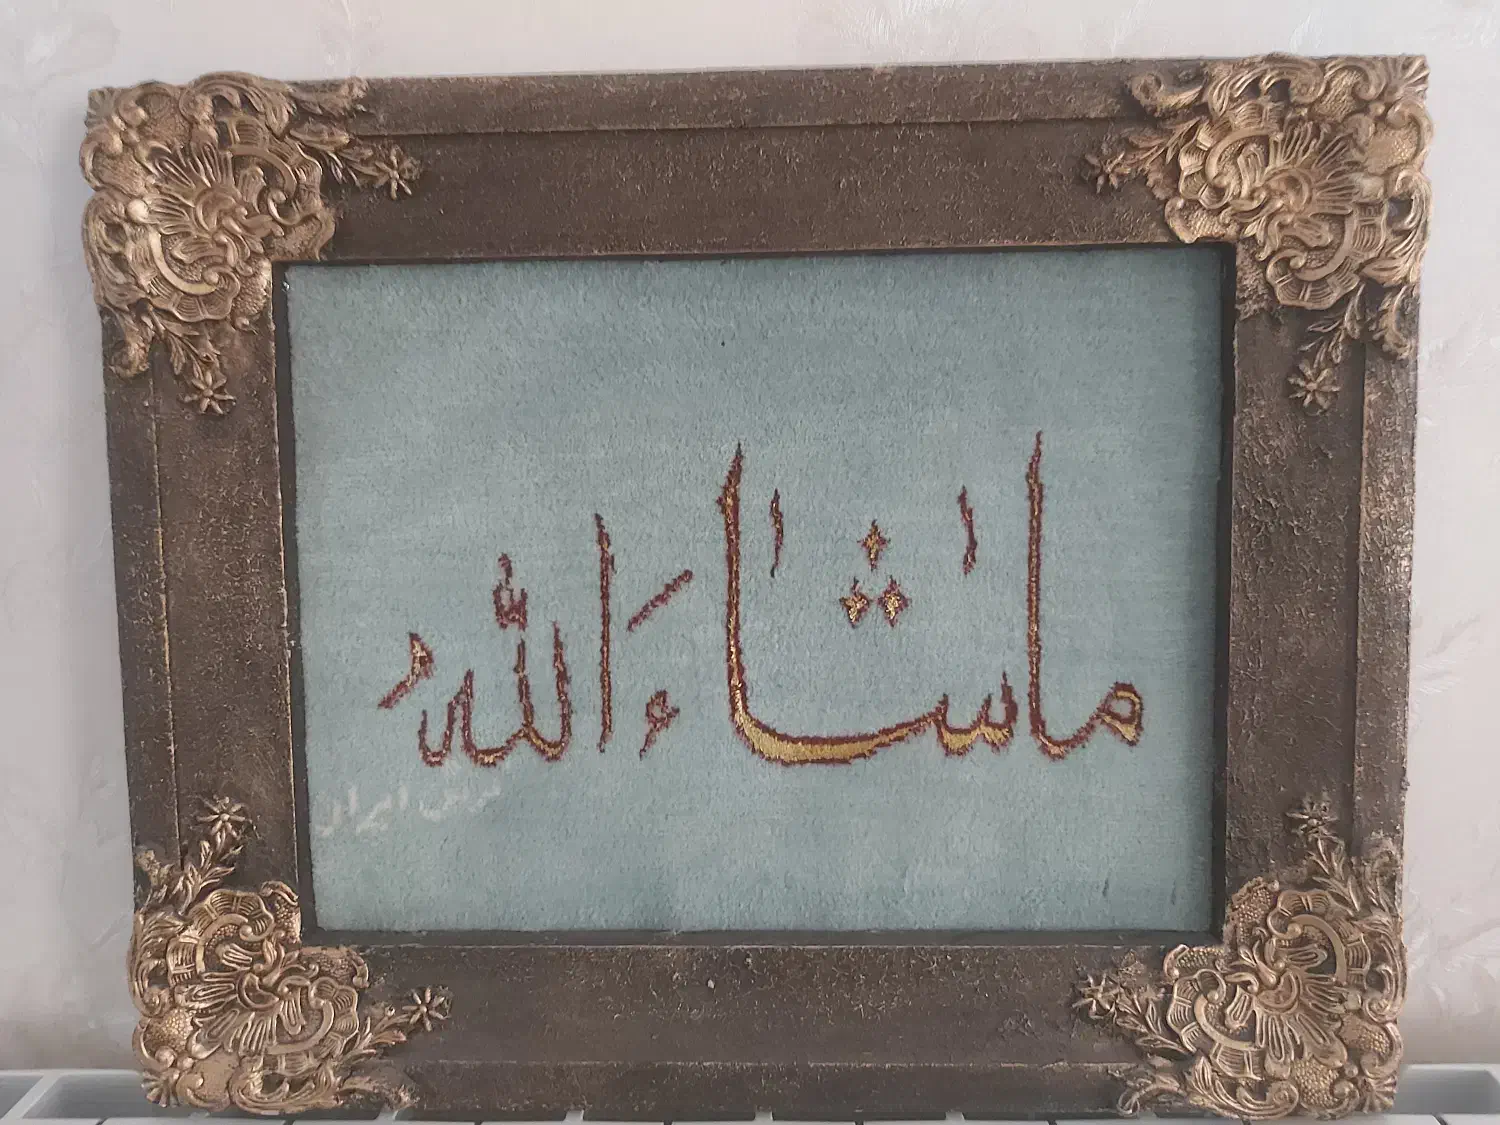 مَاشَاءَ اللّٰهُ
فرش ایران